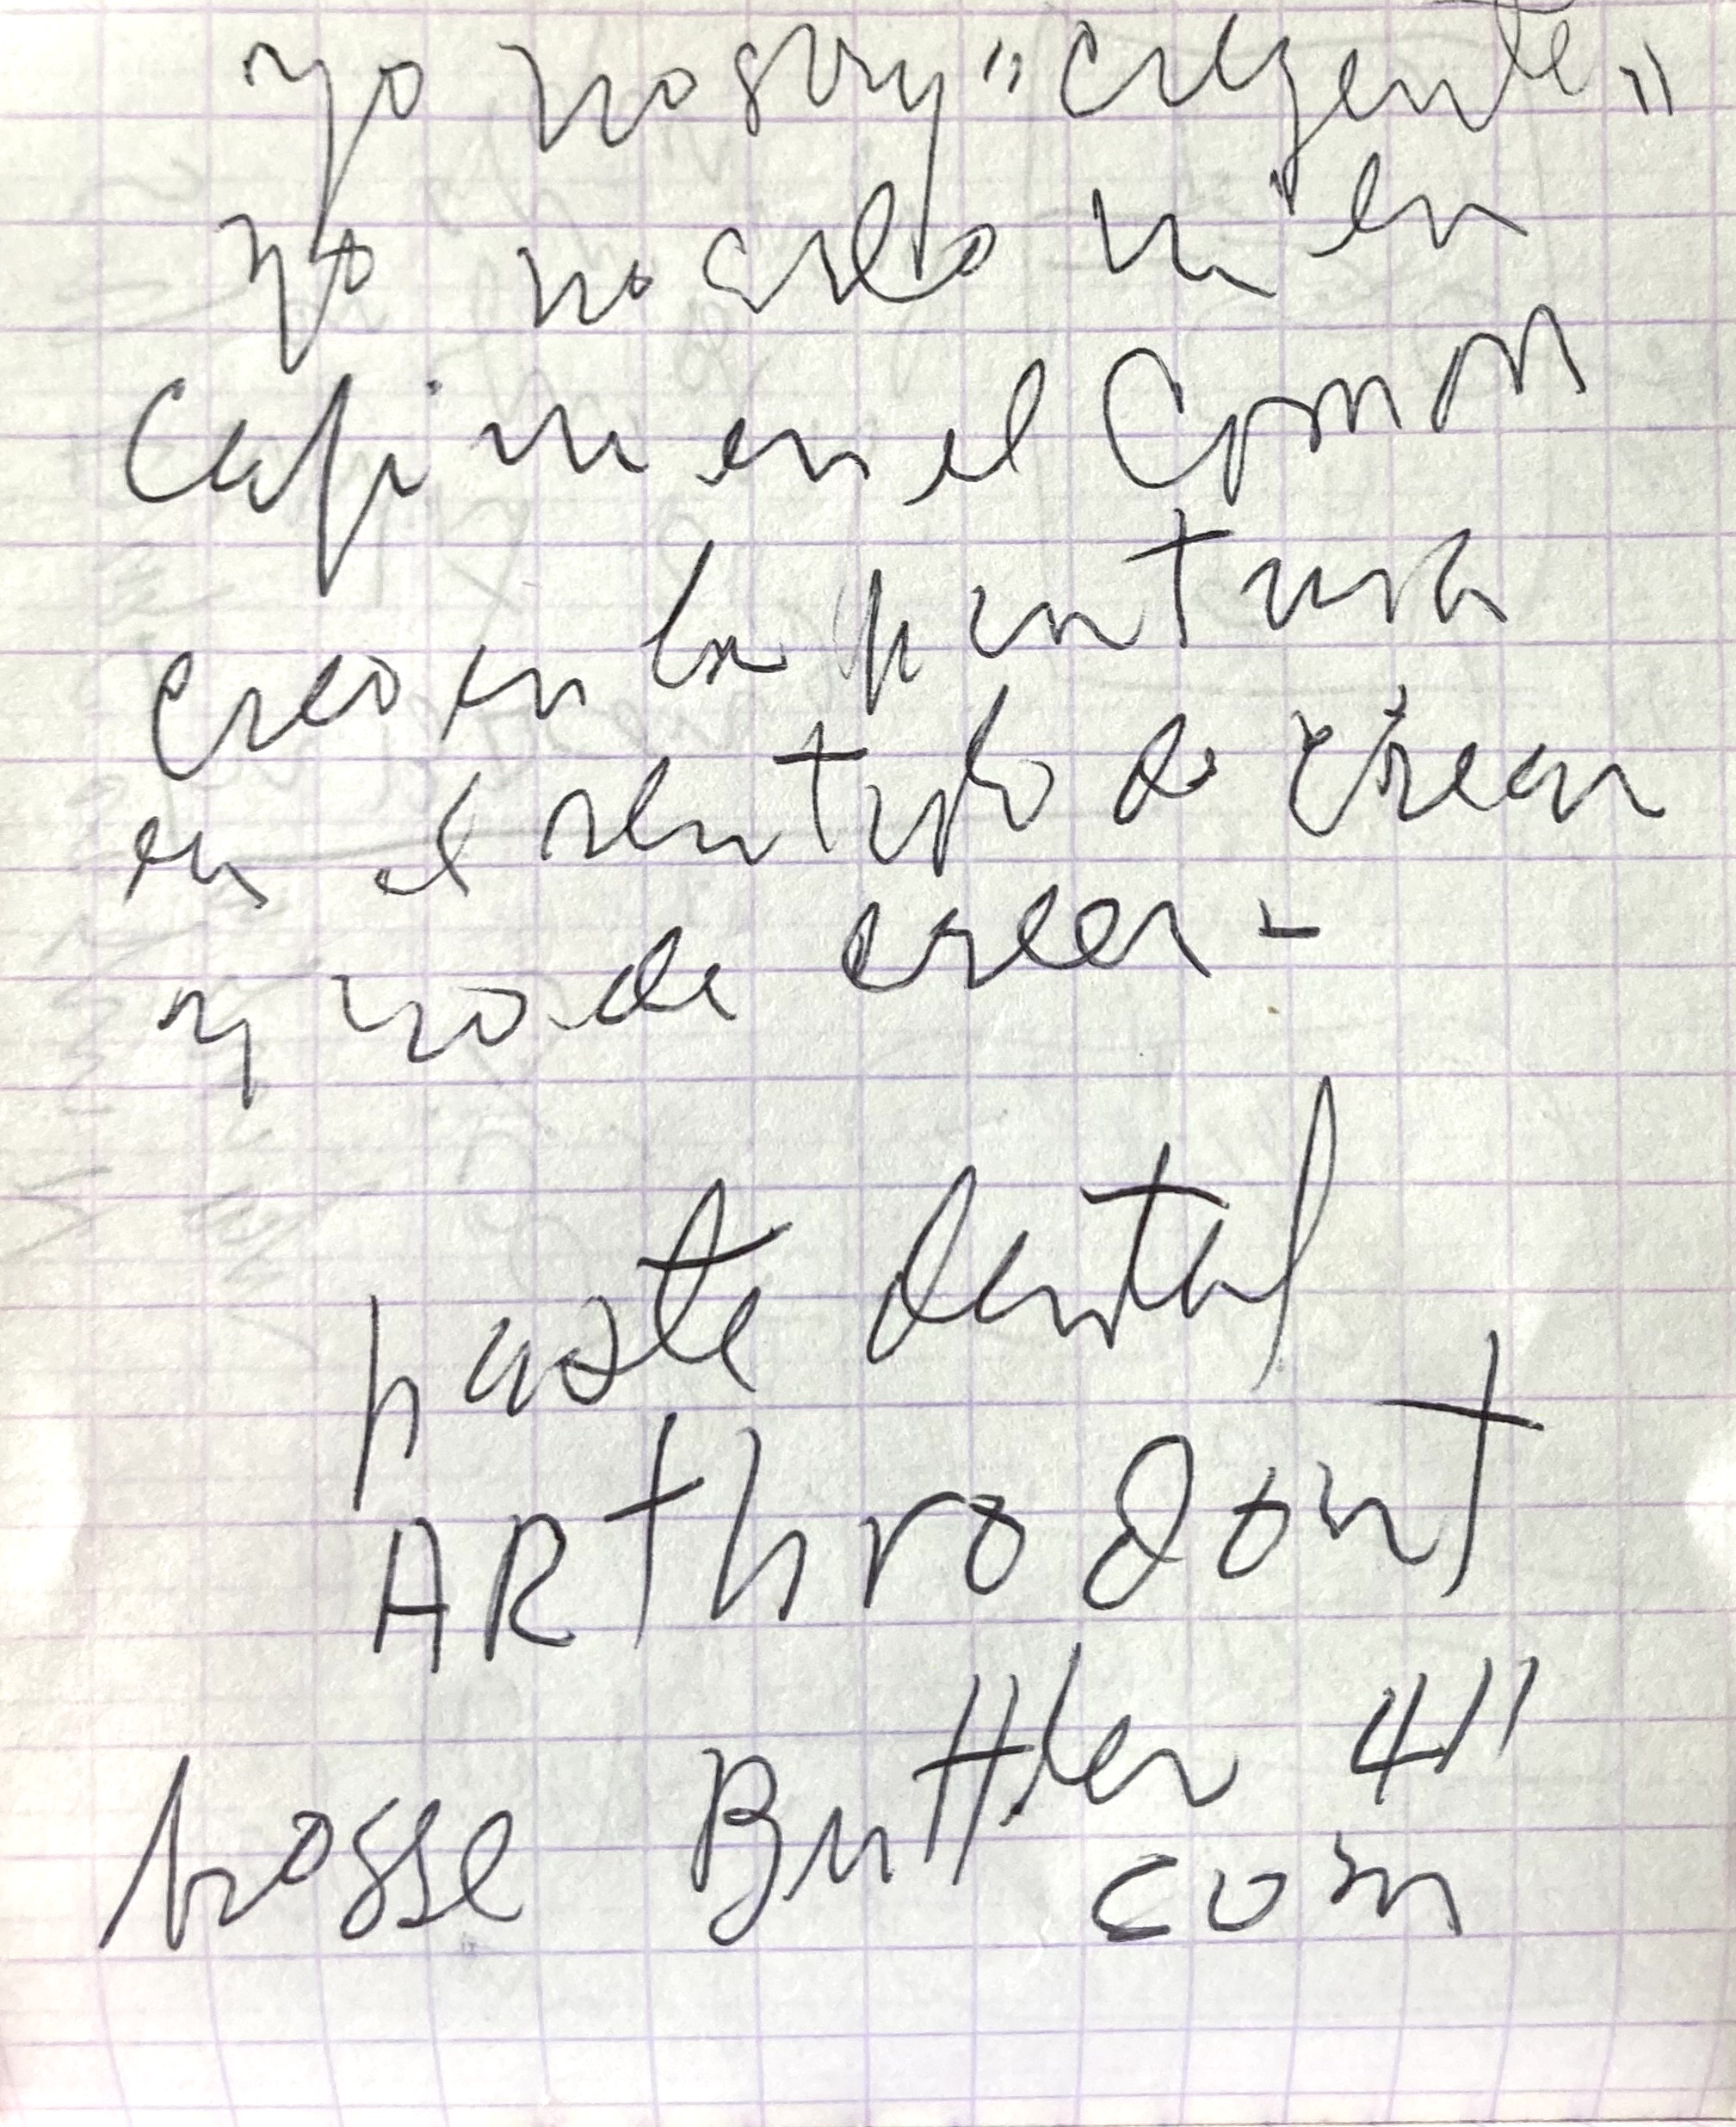 yo no soy "creyente"
yo no creo ni en
Capi ni en el Común
creo en la pintura
en el sentido de crear
y no de creer -
paste dental
ARthrodont
brosse Buttler 411
com